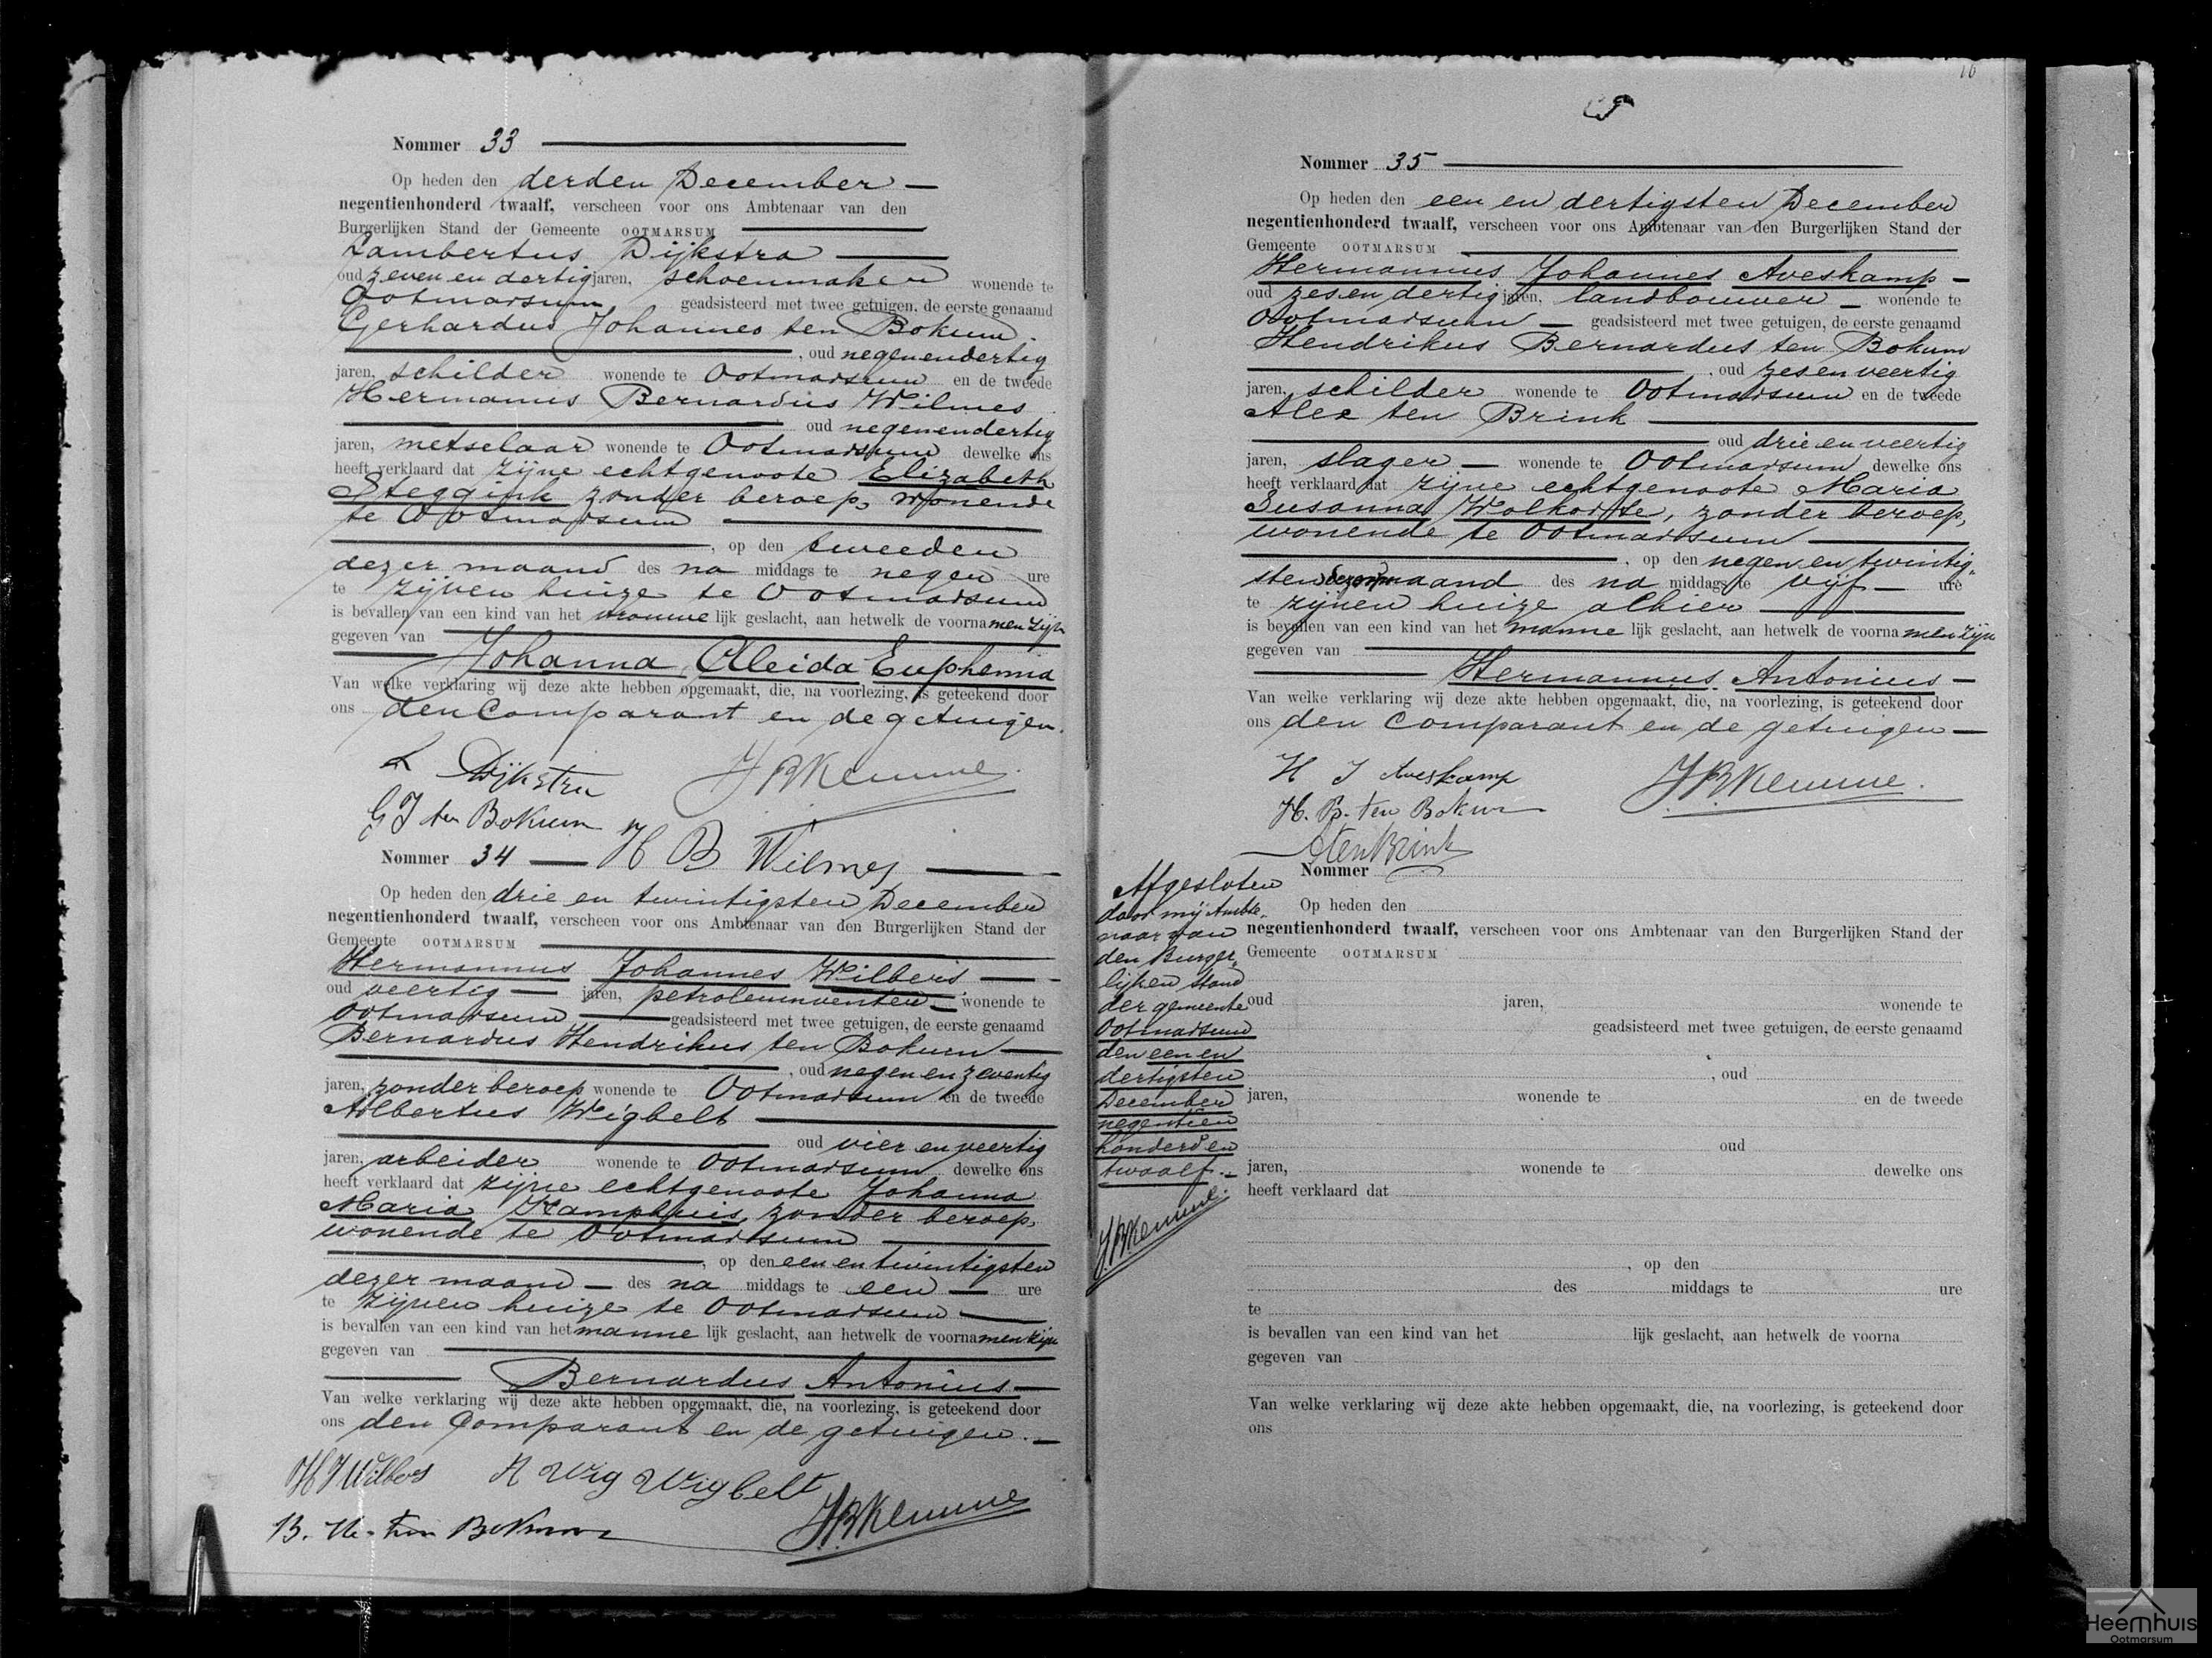 Nommer 33
Op heden den derden December
negentienhonderd twaalf, verscheen voor ons Ambtenaar van den
Burgerlijken Stand der Gemeente OOTMARSUM
Lambertus Dijkstra
oud zeven en dertig jaren, schoenmaker wonende te
Ootmarsum, geadsisteerd met twee getuigen, de eerste genaamd
Gerhardus Johannes ten Bokum
, oud negenendertig
jaren, schilder wonende te Ootmarsum en de tweede
Hermannus Bernardus Wilmes
oud negenendertig
jaren, metselaar wonende te Ootmarsum dewelke ons
heeft verklaard dat zijne echtgenoote Elizabeth
Steggink zonder beroep, wonende
te Ootmarsum
, op den tweeden
dezer maand des na middags te negen ure
te zijnen huize te Ootmarsum
is bevallen van een kind van het vrouwe lijk geslacht, aan hetwelk de voornamen zijn
gegeven van
Johanna Aleida Euphemia
Van welke verklaring wij deze akte hebben opgemaakt, die, na voorlezing, is geteekend door
ons den Comparant en de getuigen.
L Dijkstra JBKemme
G J ten Bokum
H B Wilmes
Nommer 34
Op heden den drie en twintigsten December
negentienhonderd twaalf, verscheen voor ons Ambtenaar van den Burgerlijken Stand der
Gemeente OOTMARSUM
Hermannus Johannes Wilbers
oud veertig jaren, petroleumventer wonende te
Ootmarsum geadsisteerd met twee getuigen, de eerste genaamd
Bernardus Hendrikus ten Bokum
, oud negen en zeventig
jaren, zonder beroep wonende te Ootmarsum en de tweede
Albertus Wigbelt
oud vier en veertig
jaren, arbeider wonende te Ootmarsum dewelke ons
heeft verklaard dat zijne echtgenoote Johanna
Maria Kamphuis, zonder beroep,
wonende te Ootmarsum
, op den een en twintigsten
dezer maand des na middags te een ure
te zijnen huize te Ootmarsum
is bevallen van een kind van het manne lijk geslacht, aan hetwelk de voornamen zijn
gegeven van
Bernardus Antonius
Van welke verklaring wij deze akte hebben opgemaakt, die, na voorlezing, is geteekend door
ons den Comparant en de getuigen.
H J Wilbers A Wig Wigbelt
B. H. ten Bokum JBKemme
16
Nommer 35
Op heden den een en dertigsten December
negentienhonderd twaalf, verscheen voor ons Ambtenaar van den Burgerlijken Stand der
Gemeente OOTMARSUM
Hermannus Johannes Aveskamp
oud zesendertig jaren, landbouwer wonende te
Ootmarsum geadsisteerd met twee getuigen, de eerste genaamd
Hendrikus Bernardus ten Bokum
, oud zesenveertig
jaren, schilder wonende te Ootmarsum en de tweede
Alex ten Brink
oud drie en veertig
jaren, slager wonende te Ootmarsum dewelke ons
heeft verklaard dat zijne echtgenoote Maria
Susanna Wolkotte, zonder beroep,
wonende te Ootmarsum
, op den negen en twintig-
sten dezer maand des na middags te vijf ure
te zijnen huize alhier
is bevallen van een kind van het manne lijk geslacht, aan hetwelk de voornamen zijn
gegeven van
Hermannus Antonius
Van welke verklaring wij deze akte hebben opgemaakt, die, na voorlezing, is geteekend door
ons den comparant en de getuigen
H J Aveskamp JBKemme.
H. B. ten Bokum
AtenBrink
Afgesloten
door mij Ambte-
naar van
den Burger-
lijken stand
der gemeente
Ootmarsum
den een en
dertigsten
December
negentien
honderd en
twaalf.
JBKemme.
Nommer
Op heden den
negentienhonderd twaalf, verscheen voor ons Ambtenaar van den Burgerlijken Stand der
Gemeente OOTMARSUM
oud jaren, wonende te
geadsisteerd met twee getuigen, de eerste genaamd
, oud
jaren, wonende te en de tweede
oud
jaren, wonende te dewelke ons
heeft verklaard dat
, op den
des middags te ure
te
is bevallen van een kind van het lijk geslacht, aan hetwelk de voorna
gegeven van
Van welke verklaring wij deze akte hebben opgemaakt, die, na voorlezing, is geteekend door
ons
Heemhuis
Ootmarsum